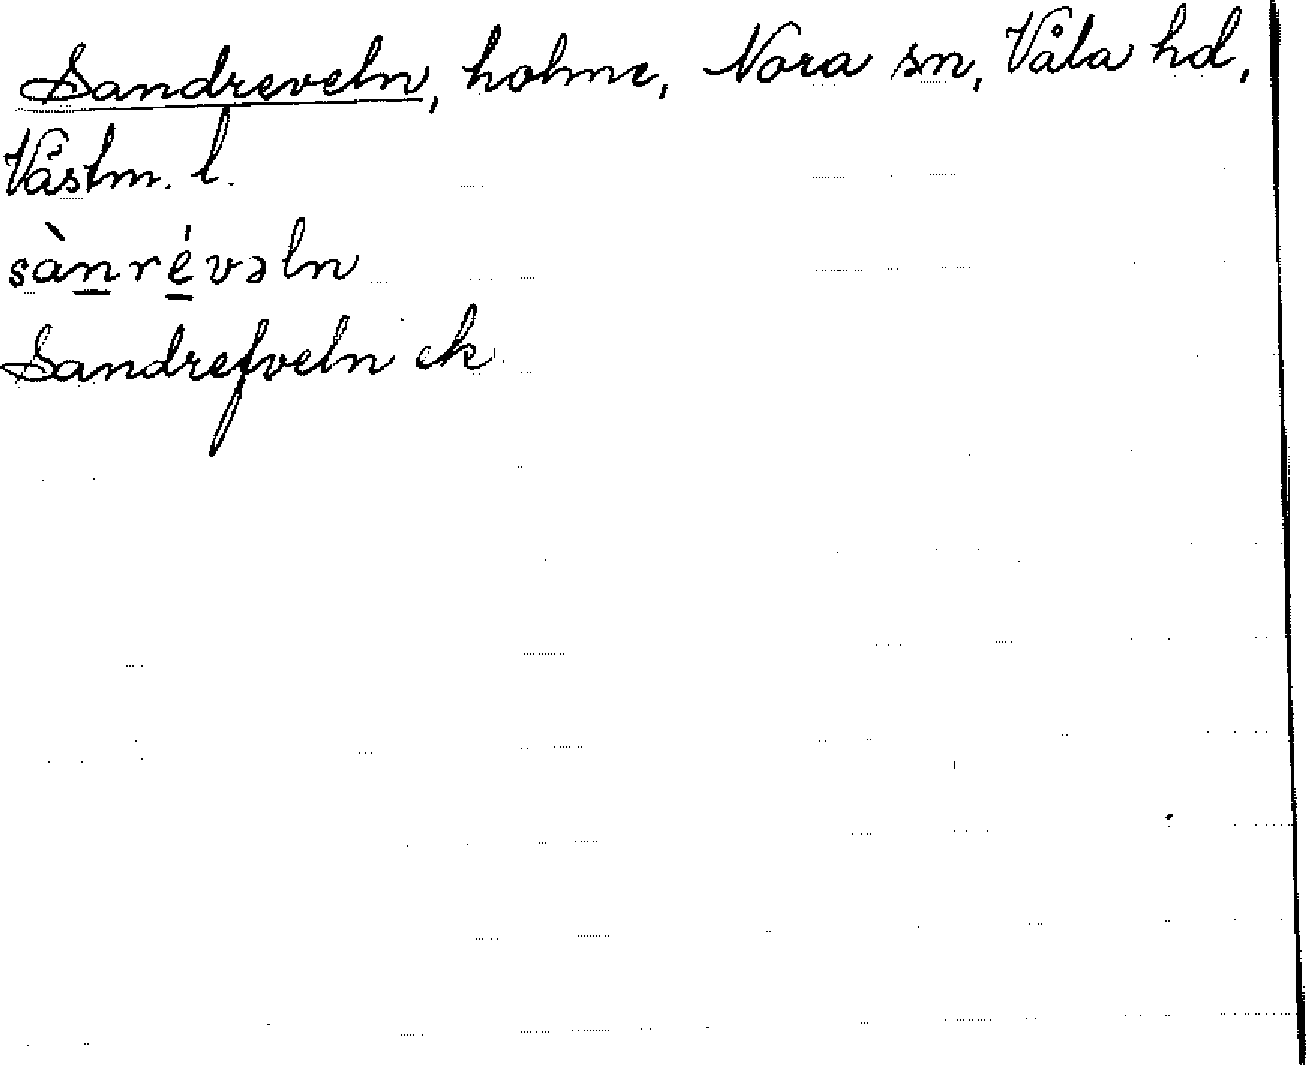 Sandreveln, holme, Nora sn, Våla hd,
Västm. l.
sàn̲ré̲vəln
Sandrefveln ek